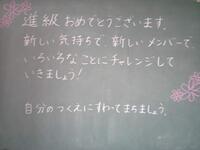 進級おめでとうございます。
新しい気持ちで、新しいメンバーで、
いろいろなことにチャレンジして
いきましょう！
自分のつくえにすわってまちましょう。